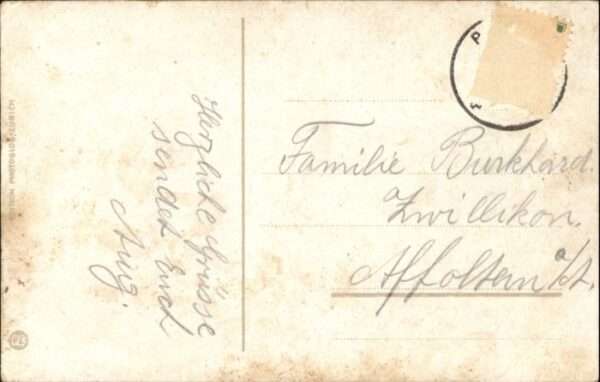 Herzliche Grüsse
sendet Euch
Aug.
Familie Burkhard.
Zwillikon.
Affoltern a/A.
P